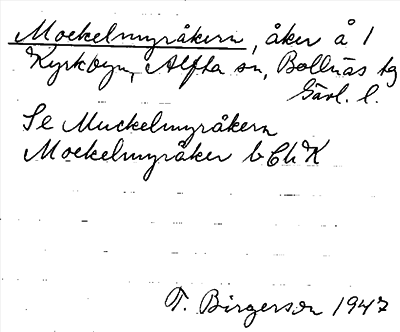 Mockelmyråkern, åker å 1
Kyrkbyn, Alfta sn, Bollnäs tg
Gävl. l.
Se Muckelmyråkern
Mockelmyråker b
T. Birgerson 1947